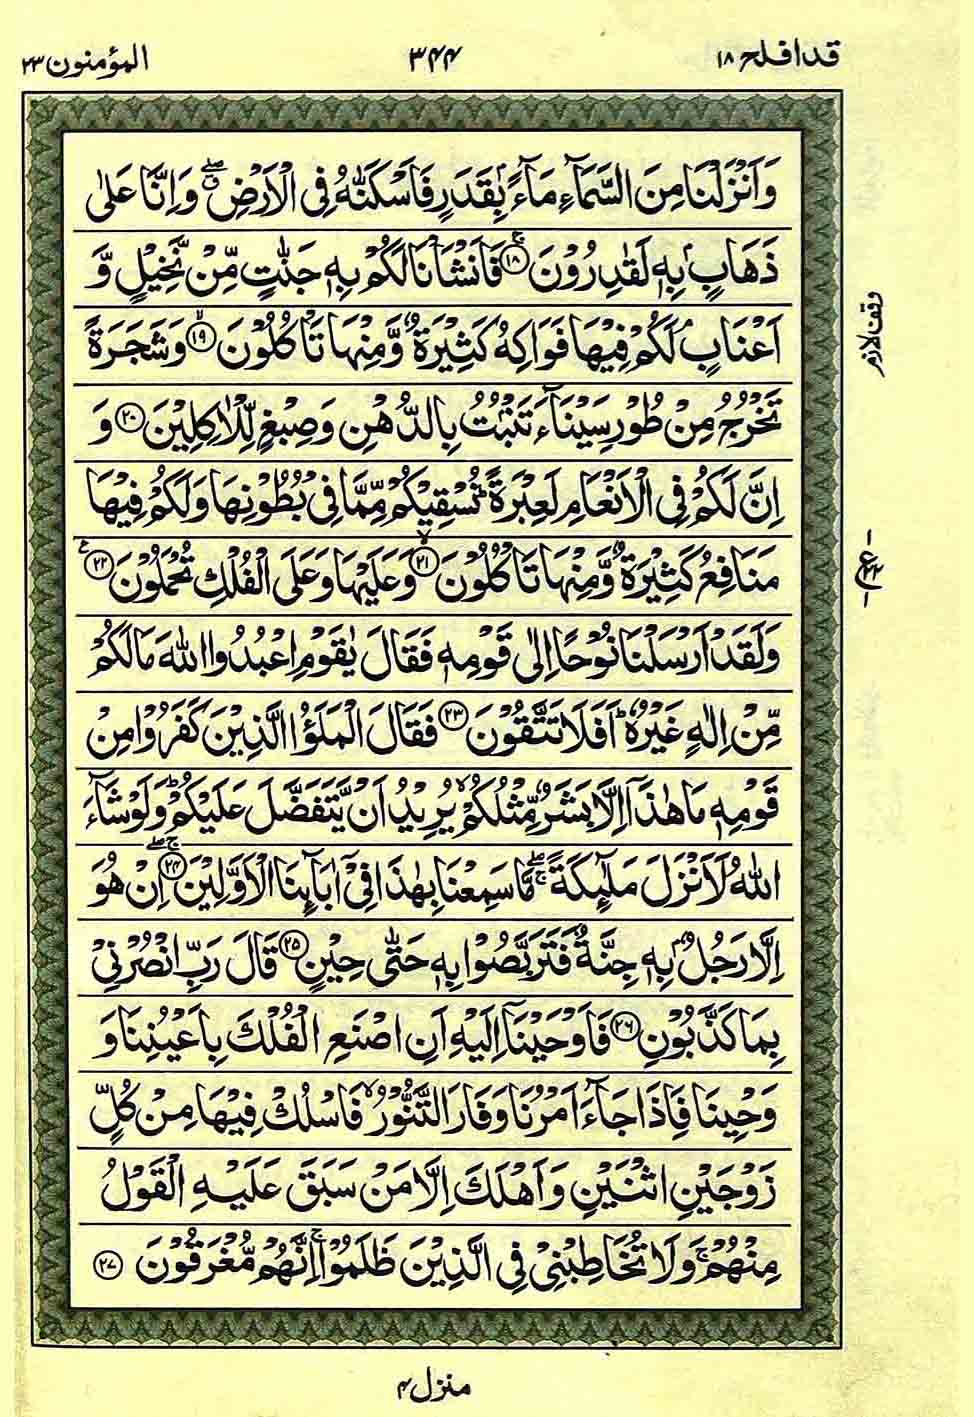 قد افلح ١٨
٣٤٤
المؤمنون ٢٣
وَاَنْزَلْنَا مِنَ السَّمَآءِ مَآءًۢ بِقَدَرٍ فَاَسْكَنّٰهُ فِی الْاَرْضِ ۖۗ وَاِنَّا عَلٰی
ذَهَابٍۭ بِهٖ لَقٰدِرُوْنَ ﴿١٨﴾ۚ فَاَنْشَاْنَا لَكُمْ بِهٖ جَنّٰتٍ مِّنْ نَّخِیْلٍ وَّ
اَعْنَابٍ ۘ لَكُمْ فِیْهَا فَوَاكِهُ كَثِیْرَةٌ وَّمِنْهَا تَاْكُلُوْنَ ﴿١٩﴾ۙ وَشَجَرَةً
تَخْرُجُ مِنْ طُوْرِ سَیْنَآءَ تَنْۢبُتُ بِالدُّهْنِ وَصِبْغٍ لِّلْاٰكِلِیْنَ ﴿٢٠﴾ وَ
اِنَّ لَكُمْ فِی الْاَنْعَامِ لَعِبْرَةً ؕ نُسْقِیْكُمْ مِّمَّا فِیْ بُطُوْنِهَا وَلَكُمْ فِیْهَا
مَنَافِعُ كَثِیْرَةٌ وَّمِنْهَا تَاْكُلُوْنَ ﴿٢١﴾ۙ وَعَلَیْهَا وَعَلَی الْفُلْكِ تُحْمَلُوْنَ ﴿٢٢﴾ ع
وَلَقَدْ اَرْسَلْنَا نُوْحًا اِلٰی قَوْمِهٖ فَقَالَ یٰقَوْمِ اعْبُدُوا اللّٰهَ مَا لَكُمْ
مِّنْ اِلٰهٍ غَیْرُهٗ ؕ اَفَلَا تَتَّقُوْنَ ﴿٢٣﴾ فَقَالَ الْمَلَؤُا الَّذِیْنَ كَفَرُوْا مِنْ
قَوْمِهٖ مَا هٰذَاۤ اِلَّا بَشَرٌ مِّثْلُكُمْ ۙ یُرِیْدُ اَنْ یَّتَفَضَّلَ عَلَیْكُمْ ؕ وَلَوْ شَآءَ
اللّٰهُ لَاَنْزَلَ مَلٰٓىِٕكَةً ۖۚ مَّا سَمِعْنَا بِهٰذَا فِیْۤ اٰبَآىِٕنَا الْاَوَّلِیْنَ ﴿٢٤﴾ۖۚ اِنْ هُوَ
اِلَّا رَجُلٌۢ بِهٖ جِنَّةٌ فَتَرَبَّصُوْا بِهٖ حَتّٰی حِیْنٍ ﴿٢٥﴾ قَالَ رَبِّ انْصُرْنِیْ
بِمَا كَذَّبُوْنِ ﴿٢٦﴾ فَاَوْحَیْنَاۤ اِلَیْهِ اَنِ اصْنَعِ الْفُلْكَ بِاَعْیُنِنَا وَ
وَحْیِنَا فَاِذَا جَآءَ اَمْرُنَا وَفَارَ التَّنُّوْرُ ۙ فَاسْلُكْ فِیْهَا مِنْ كُلٍّ
زَوْجَیْنِ اثْنَیْنِ وَاَهْلَكَ اِلَّا مَنْ سَبَقَ عَلَیْهِ الْقَوْلُ
مِنْهُمْ ۚ وَلَا تُخَاطِبْنِیْ فِی الَّذِیْنَ ظَلَمُوْا ۚ اِنَّهُمْ مُّغْرَقُوْنَ ﴿٢٧﴾
وقف لازم
منزل ۴